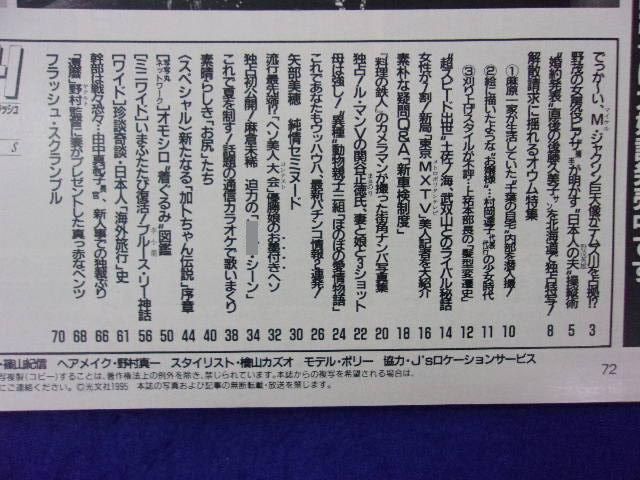 でっか〜い、M・ジャクソン巨大像がテムズ川を占拠!? 3
野茂の女房役ピアザ捕手が明かす“日本人の夫”操縦術 5
“婚約発表”直後の後藤久美子サンを北海道で独占侍写! 8
解散請求に揺れるオウム特集
①麻原一家が生活していた「千葉の自宅」内部を潜入撮! 10
②絵に描いたような“お嬢様”・村岡達子代行の少女時代 11
③刈り上げスタイルが不評・上祐本部長の「髪型変遷史」 12
“超スピード出世”土佐ノ海、武双山とのライバル秘話 14
女性が7割!新局「東京MXTV」美人記者を大紹介 16
素朴な疑問Q&A「新車検制度」 18
「料理の鉄人」のカメラマンが撮った街角ナンパ写真集 20
独占!ル・マンVの関谷正徳氏、妻と娘と3ショット 22
母は強し!「異種」動物親子三組「ほのぼの愛情物語」 24
これであなたもウハウハ、最新パチンコ情報2連発! 26
矢部美穂 純情セミヌード 30
流行最先端!「ヘソ美人大会」優勝娘のお墨付きヘソ 32
独占初公開!麻倉未稀 迫力の「 ・シーン」 34
これで夏を制す!話題の通信カラオケで歌いまくり 38
素晴らしき「お尻」たち 40
〈スペシャル〉新たなる「加トちゃん伝説」序章 44
オモシロ「着ぐるみ」図鑑 50
[ミニワイド]いまふたたび復活!ブルース・リー神話 56
[ワイド]珍談奇談・日本人「海外旅行」史 61
幹部は戦々恐々…田中真紀子長官、新人事での独裁ぶり 66
「還暦」野村監督に妻がプレゼントした真っ赤なベンツ 68
フラッシュ・スクランブル 70
・篠山紀信 ヘアメイク・野村真一 スタイリスト・檜山カズオ モデル・ポリー 協力・J'sロケーションサービス
写複製(コピー)することは、著作権法上の例外を除き、禁じられています。本誌からの複写を希望される場合は、
にご連絡ください。 ©光文社1995 本誌の写真および記事の無断転載・放送を禁じます。
72